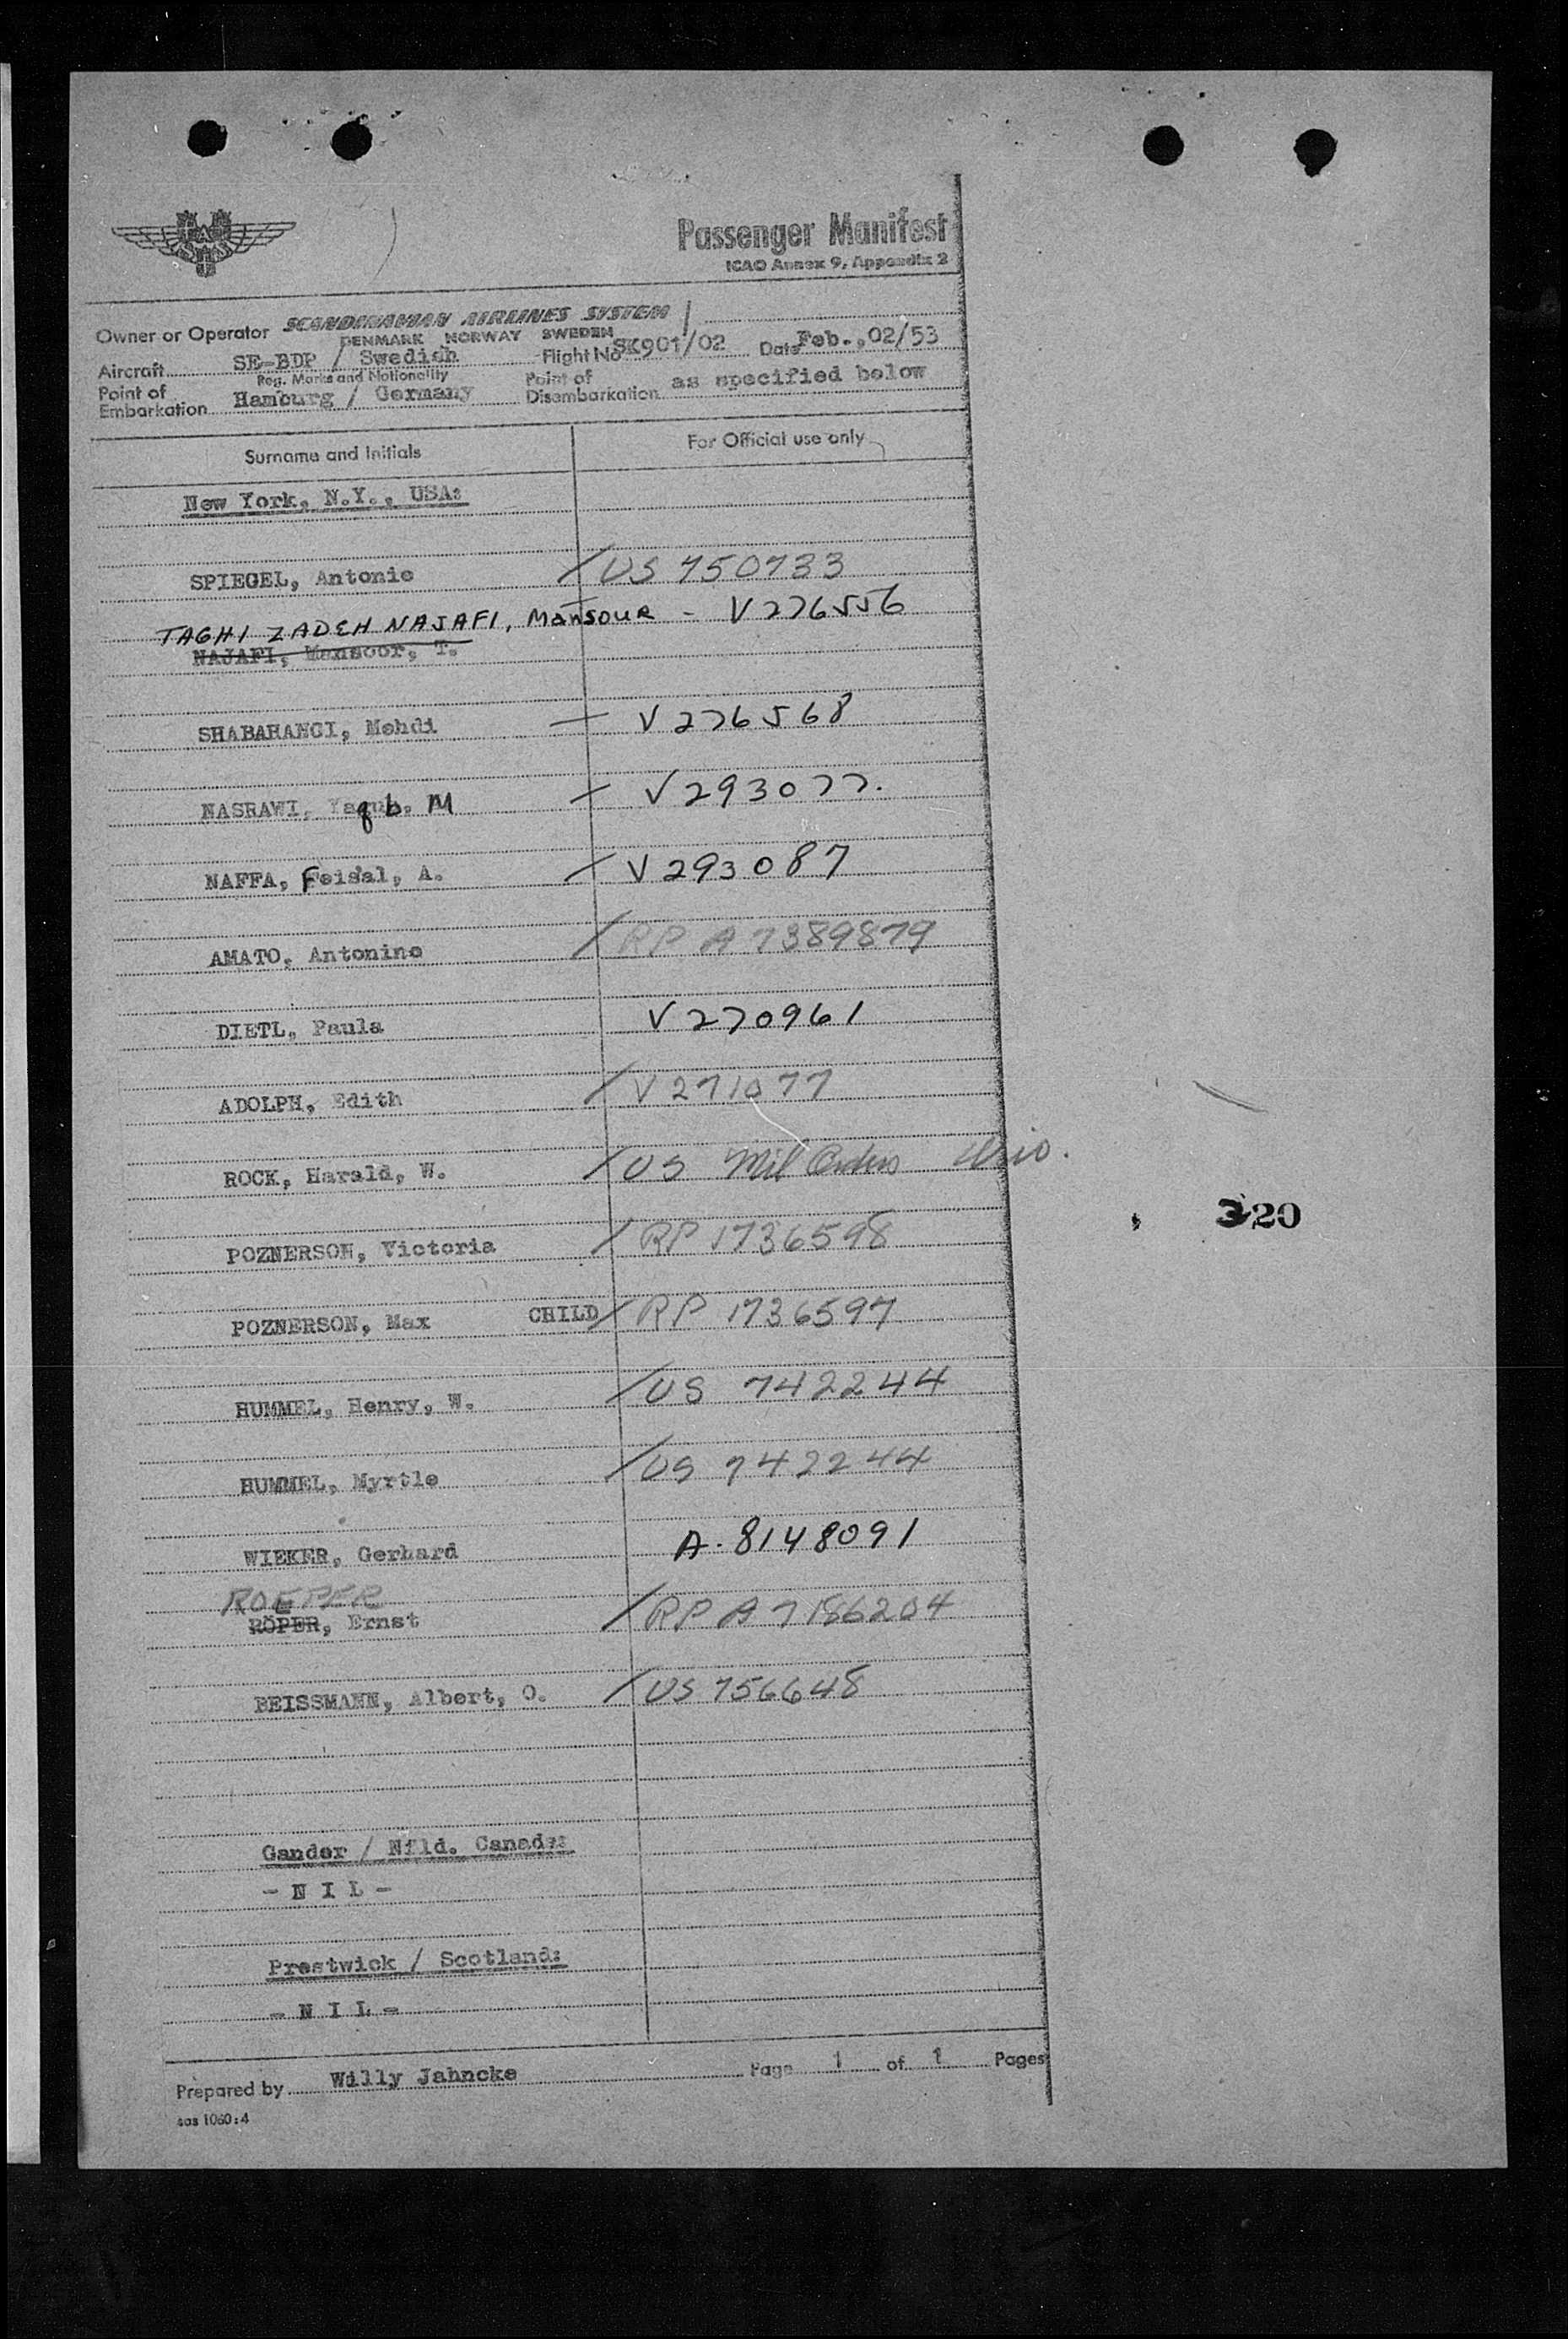 Passenger Manifest
ICAO Annex 9, Appendix 2
Owner or Operator SCANDINAVIAN AIRLINES SYSTEM
DENMARK NORWAY SWEDEN
Aircraft SE-BDP / Swedish Flight No SK901/02 Date Feb.,02/53
Reg. Marks and Nationality
Point of Embarkation Hamburg / Germany Point of Disembarkation as specified below
Surname and Initials For Official use only
New York, N.Y., USA:
SPIEGEL, Antonie / US 750733
TAGHI ZADEH NAJAFI, Mansour - V276556
NAJAFI, Mansoor, T.
SHABARANGI, Mehdi - V276568
NASRAWI, Yaqub. M - V293077.
NAFFA, Feisal, A. / V293087
AMATO, Antonino / RP A7389879
DIETL, Paula V270961
ADOLPH, Edith / V271077
ROCK, Harald, W. / US Mil Orders
320
POZNERSON, Victoria / RP 1736598
POZNERSON, Max CHILD / RP 1736597
HUMMEL, Henry, W. / US 742244
HUMMEL, Myrtle / US 742244
WIEKER, Gerhard A. 8148091
ROEPER
RÖPER, Ernst / RP A7186204
BEISSMANN, Albert, O. / US 756648
Gander / Nfld. Canada:
- N I L -
Prestwick / Scotland:
- N I L -
Prepared by Willy Jahncke Page 1 of 1 Pages
sas 1060:4